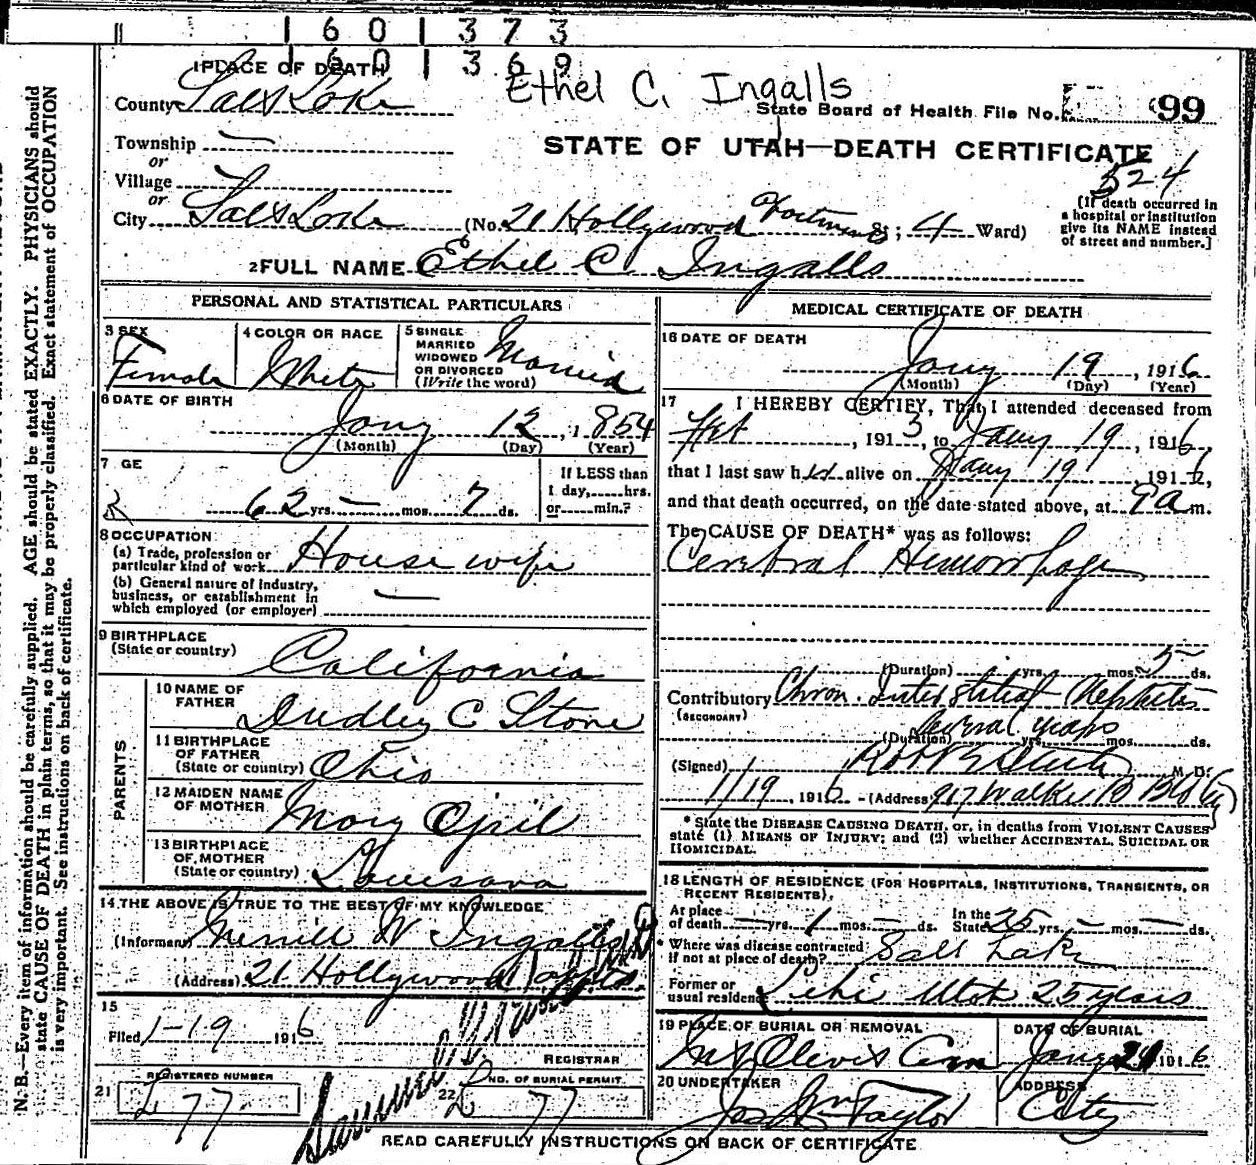 6 0 3 7 3
6 0 3 6 9
Ethel C. Ingalls
1 PLACE OF DEATH
County Salt Lake
State Board of Health File No. 99
Township —
STATE OF UTAH—DEATH CERTIFICATE
or
Village
524
or
City Salt Lake (No. 21 Hollywood St; 4 Ward)
[If death occurred in
a hospital or institution
give its NAME instead
of street and number.]
2 FULL NAME Ethel C. Ingalls
PERSONAL AND STATISTICAL PARTICULARS
3 SEX
Female
4 COLOR OR RACE
White
5 SINGLE
MARRIED
WIDOWED
OR DIVORCED
(Write the word)
Married
6 DATE OF BIRTH
Jany 12, 1854
(Month) (Day) (Year)
7 GE
62 yrs. — mos. 7 ds.
If LESS than
1 day,......hrs.
or......min.?
8 OCCUPATION
(a) Trade, profession or
particular kind of work House wife
(b) General nature of industry,
business, or establishment in
which employed (or employer) —
9 BIRTHPLACE
(State or country) California
PARENTS
10 NAME OF
FATHER Dudley C Stone
11 BIRTHPLACE
OF FATHER
(State or country) Ohio
12 MAIDEN NAME
OF MOTHER Mary
13 BIRTHPLACE
OF MOTHER
(State or country)
14 THE ABOVE IS TRUE TO THE BEST OF MY KNOWLEDGE
(Informant) Merrill W Ingalls
(Address) 21 Hollywood
15
Filed 1-19 1916
REGISTRAR
REGISTERED NUMBER
21 77
NO. OF BURIAL PERMIT
22 77
MEDICAL CERTIFICATE OF DEATH
16 DATE OF DEATH
Jany 19, 1916
(Month) (Day) (Year)
17 I HEREBY CERTIFY, That I attended deceased from
, 1913, to Jany 19, 1916,
that I last saw her alive on Jany 19, 191
and that death occurred, on the date stated above, at 9 a m.
The CAUSE OF DEATH* was as follows:
Cerebral Hemorrhage
(Duration) yrs. mos. 5 ds.
Contributory Chron. Interstitial Nephritis
(SECONDARY)
Several years
(Duration) yrs. mos. ds.
(Signed) M. D.
1/19, 1916 (Address) 917 Walker B Bldg
* State the DISEASE CAUSING DEATH, or, in deaths from VIOLENT CAUSES
state (1) MEANS OF INJURY; and (2) whether ACCIDENTAL, SUICIDAL OR
HOMICIDAL.
18 LENGTH OF RESIDENCE (FOR HOSPITALS, INSTITUTIONS, TRANSIENTS, OR
RECENT RESIDENTS).
At place
of death — yrs. 1 mos. — ds.
In the
State 25 yrs. — mos. — ds.
* Where was disease contracted
if not at place of death? Salt Lake
Former or
usual residence Lehi Utah 25 years
19 PLACE OF BURIAL OR REMOVAL
Mt Olivet Cem
DATE OF BURIAL
Jany 21 1916
20 UNDERTAKER
Jos Wm Taylor
ADDRESS
City
READ CAREFULLY INSTRUCTIONS ON BACK OF CERTIFICATE
N. B.—Every item of information should be carefully supplied. AGE should be stated EXACTLY. PHYSICIANS should
state CAUSE OF DEATH in plain terms, so that it may be properly classified. Exact statement of OCCUPATION
is very important. See instructions on back of certificate.